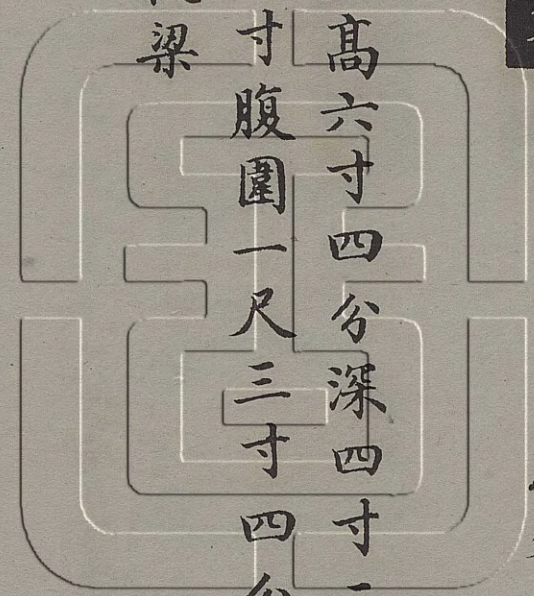 高六寸四分深四寸
寸腹圍一尺三寸四分
梁